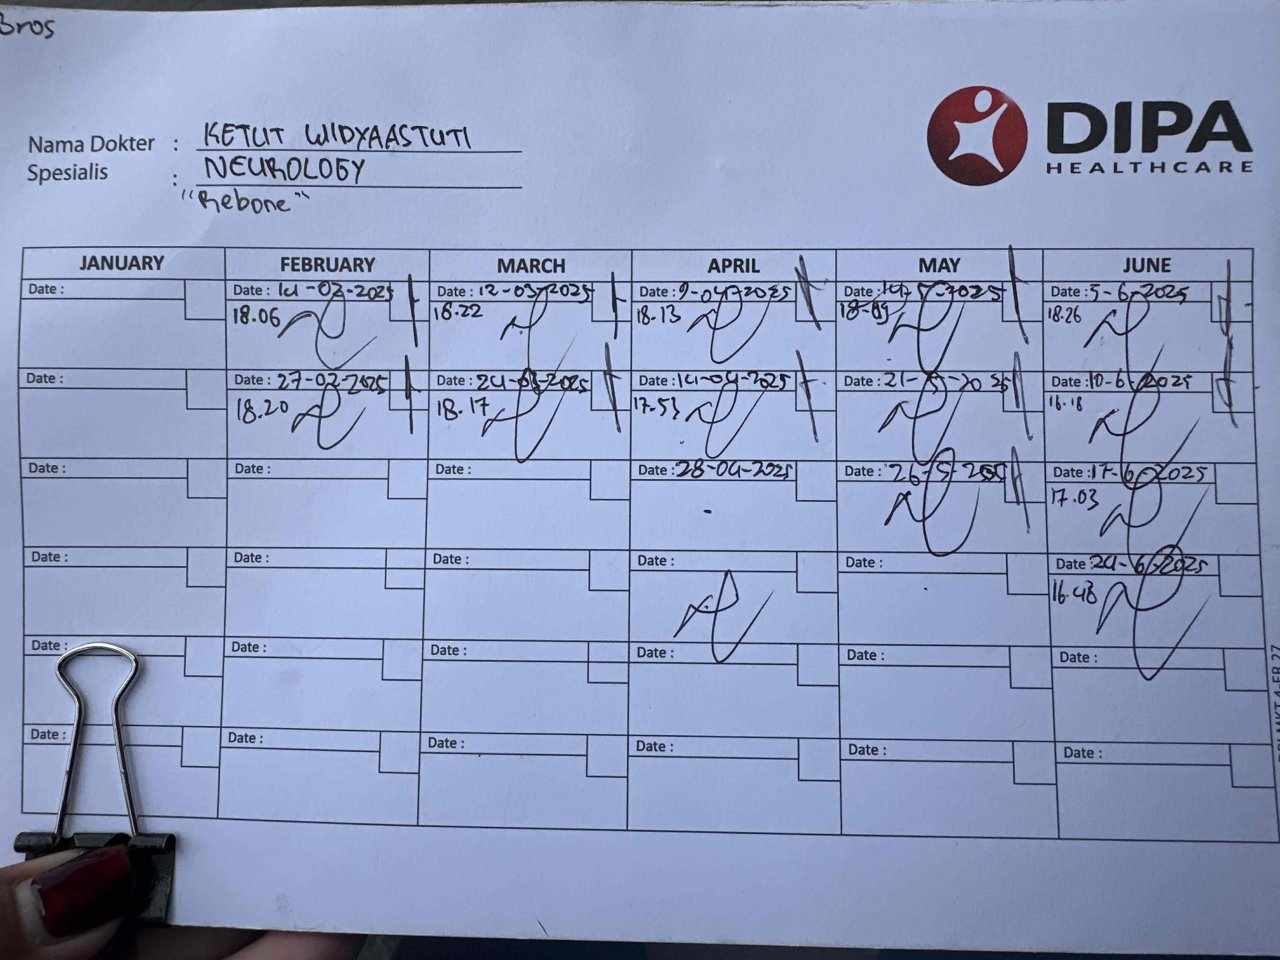 Bros
DIPA
HEALTHCARE
Nama Dokter : KETUT WIDYAASTUTI
Spesialis : NEUROLOGY
"Rebone"
JANUARY FEBRUARY MARCH APRIL MAY JUNE
Date : Date : 14-02-2025 Date : 12-03-2025 Date : 9-04-2025 Date : 14-5-2025 Date : 5-6-2025
18.06 18.22 18.13 18.26
Date : Date : 27-02-2025 Date : 24-03-2025 Date : 14-04-2025 Date : 21-5-2025 Date : 10-6-2025
18.20 18.17 17.53 16.18
Date : Date : Date : Date : 28-04-2025 Date : 26-5-2025 Date : 17-6-2025
17.03
Date : Date : Date : Date : Date : Date : 24-6-2025
16.43
Date : Date : Date : Date : Date : Date :
Date : Date : Date : Date : Date : Date :